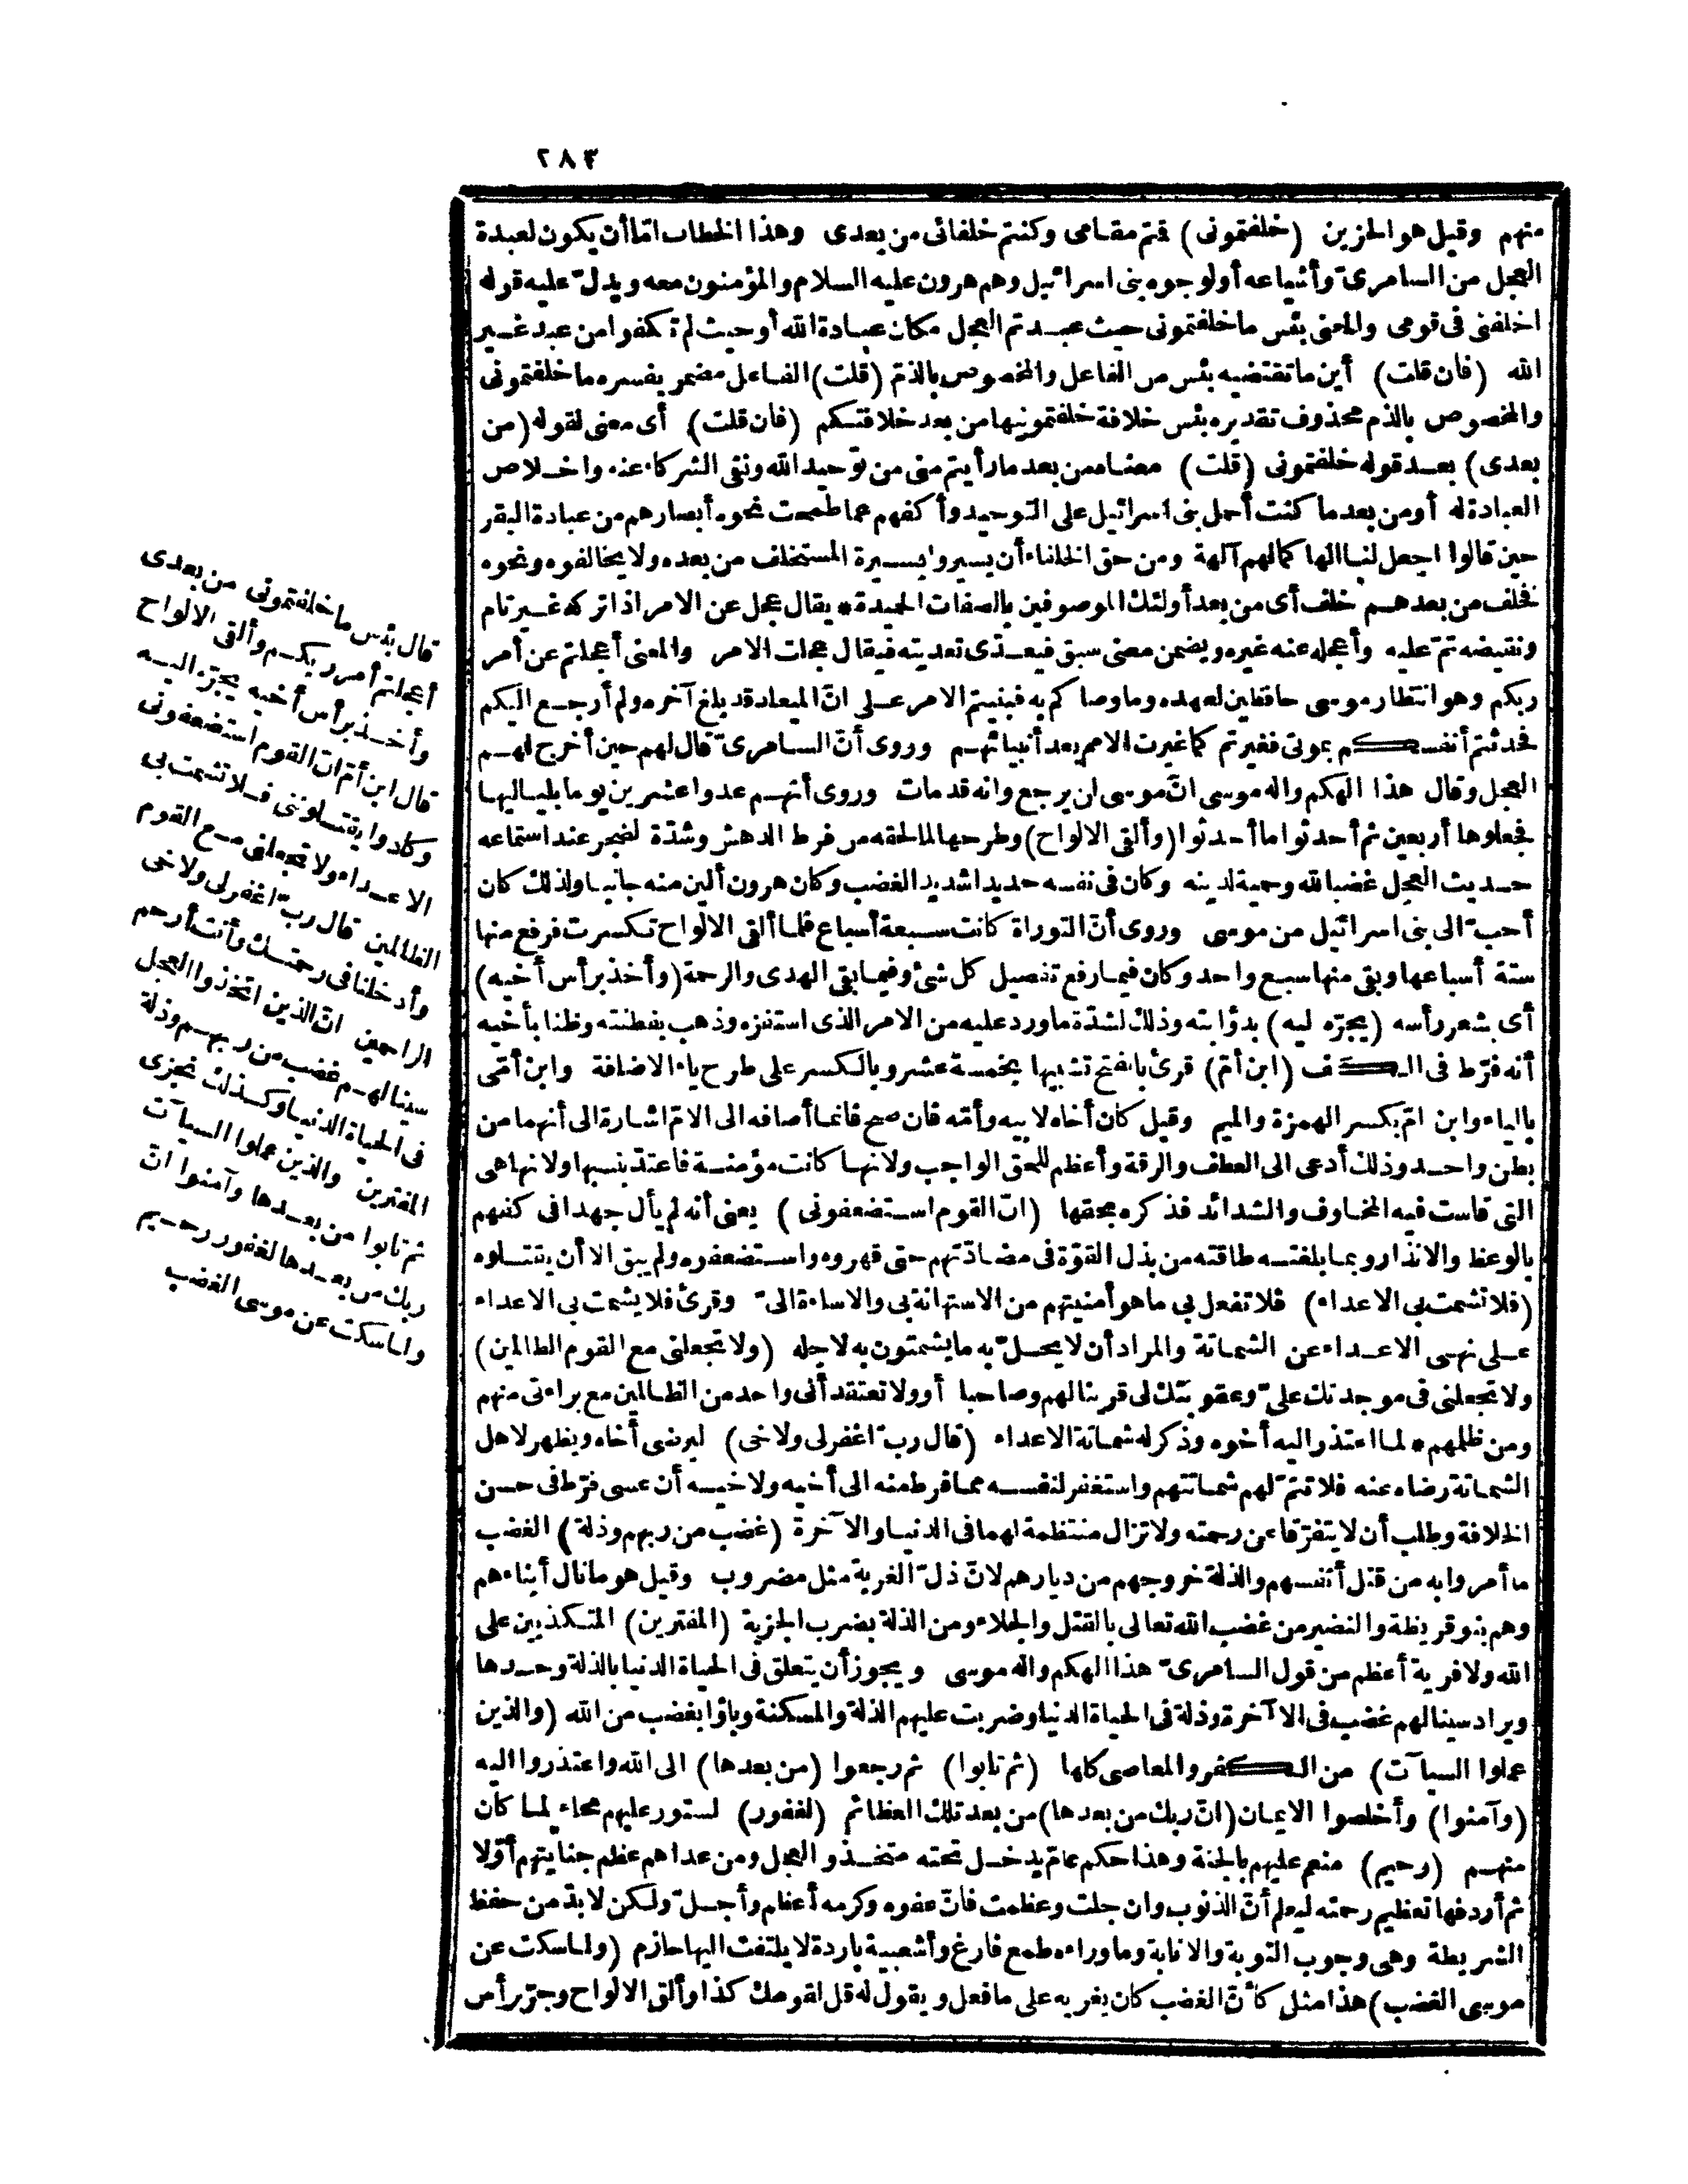 ٢٨٣
منهم وقيل هو الحزين (خلفتمونى) قتم مقامى وكنتم خلفائى من بعدى وهذا الخطاب امّا أن يكون لعبدة
العجل من السامرىّ وأشياعه أو لوجوه بنى اسرائيل وهم هرون عليه السلام والمؤمنون معه ويدلّ عليه قوله
اخلفنى فى قومى والمعنى بئس ما خلفتمونى حيث عبدتم العجل مكان عبادة الله أو حيث لم تكفوا من عبد غير
الله (فان قلت) أين ما تقتضيه بئس من الفاعل والمخصوص بالذمّ (قلت) الفاعل مضمر يفسره ما خلفتمونى
والمخصوص بالذم محذوف تقديره بئس خلافة خلفتمونيها من بعد خلافتكم (فان قلت) أى معنى لقوله (من
بعدى) بعد قوله خلفتمونى (قلت) معناه من بعد ما رأيتم منى من توحيد الله ونفى الشركاء عنه واخلاص
العبادة له أو من بعد ما كنت أحمل بنى اسرائيل على التوحيد وأكفهم عما طمحت نحوه أبصارهم من عبادة البقر
حين قالوا اجعل لنا الها كما لهم آلهة ومن حق الخلفاء أن يسيروا بسيرة المستخلف من بعده ولا يخالفوه ونحوه
فخلف من بعدهم خلف أى من بعد أولئك الموصوفين بالصفات الحميدة * يقال عجل عن الامر اذا تركه غير تام
ونقيضه تمّ عليه وأعجله عنه غيره ويضمن معنى سبق فيعدّى تعديته فيقال عجلت الامر والمعنى أعجلتم عن أمر
ربكم وهو انتظار موسى حافظين لعهده وما وصاكم به فبنيتم الامر على انّ الميعاد قد بلغ آخره ولم أرجع اليكم
فحدثتم أنفسكم بموتى فغيرتم كما غيرت الامم بعد أنبيائهم وروى أنّ السامرىّ قال لهم حين أخرج لهم
العجل وقال هذا الهكم واله موسى انّ موسى لن يرجع وانه قد مات وروى أنهم عدوا عشرين يوما بلياليها
فجعلوها أربعين ثم أحدثوا ما أحدثوا (وألقى الالواح) وطرحها لما لحقه من فرط الدهش وشدّة الضجر عند استماعه
حديث العجل غضبا لله وحمية لدينه وكان فى نفسه حديدا شديد الغضب وكان هرون ألين منه جانبا ولذلك كان
أحبّ الى بنى اسرائيل من موسى وروى أنّ التوراة كانت سبعة أسباع فلما ألقى الالواح تكسرت فرفع منها
ستة أسباعها وبقى منها سبع واحد وكان فيما رفع تفصيل كل شئ وفيما بقى الهدى والرحمة (وأخذ برأس أخيه)
أى بشعر رأسه (يجرّه اليه) بذؤابته وذلك لشدّة ما ورد عليه من الامر الذى استفزه وذهب بفطنته وظنا بأخيه
أنه فرّط فى الكف (ابن أمّ) قرئ بالفتح تشبيها بخمسة عشر وبالكسر على طرح ياء الاضافة وابن أمّى
بالياء وابن امّ بكسر الهمزة والميم وقيل كان أخاه لابيه وأمّه فان صح فانما أضافه الى الامّ اشارة الى أنهما من
بطن واحد وذلك أدعى الى العطف والرقة وأعظم للحق الواجب ولانها كانت مؤمنة فاعتدّ بنسبها ولانها هى
التى قاست فيه المخاوف والشدائد فذكره بحقها (انّ القوم استضعفونى) يعنى أنه لم يأل جهدا فى كفهم
بالوعظ والانذار وبما بلغته طاقته من بذل القوّة فى مضادّتهم حتى قهروه واستضعفوه ولم يبق الا أن يقتلوه
(فلا تشمت بى الاعداء) فلا تفعل بى ما هو أمنيتهم من الاستهانة بى والاساءة الىّ وقرئ فلا يشمت بى الاعداء
على نهى الاعداء عن الشماتة والمراد أن لا يحلّ به ما يشمتون به لاجله (ولا تجعلنى مع القوم الظالمين)
ولا تجعلنى فى موجدتك علىّ وعقوبتك لى قرينا لهم وصاحبا أو ولا تعتقد أنى واحد من الظالمين مع براءتى منهم
ومن ظلمهم * لما اعتذر اليه أخوه وذكر له شماتة الاعداء (قال ربّ اغفر لى ولاخى) ليرضى أخاه ويظهر لاهل
الشماتة رضاه عنه فلا تتمّ لهم شماتتهم واستغفر لنفسه مما فرط منه الى أخيه ولاخيه أن عسى فرّط فى حسن
الخلافة وطلب أن لا يتفرّقا عن رحمته ولا تزال منتظمة لهما فى الدنيا والآخرة (غضب من ربهم وذلة) الغضب
ما أمروا به من قتل أنفسهم والذلة خروجهم من ديارهم لانّ ذلّ الغربة مثل مضروب وقيل هو ما نال أبناءهم
وهم بنو قريظة والنضير من غضب الله تعالى بالقتل والجلاء ومن الذلة بضرب الجزية (المفترين) المتكذبين على
الله ولا فرية أعظم من قول السامرىّ هذا الهكم واله موسى ويجوز أن يتعلق فى الحياة الدنيا بالذلة وحدها
ويراد سينالهم غضب فى الآخرة وذلة فى الحياة الدنيا وضربت عليهم الذلة والمسكنة وباؤا بغضب من الله (والذين
عملوا السيآت) من الكفر والمعاصى كلها (ثم تابوا) ثم رجعوا (من بعدها) الى الله واعتذروا اليه
(وآمنوا) وأخلصوا الايمان (انّ ربك من بعدها) من بعد تلك العظائم (لغفور) لستور عليهم محاء لما كان
منهم (رحيم) منعم عليهم بالجنة وهذا حكم عامّ يدخل تحته متخذو العجل ومن عداهم عظم جنايتهم أوّلا
ثم أردفها تعظيم رحمته ليعلم أنّ الذنوب وان جلت وعظمت فانّ عفوه وكرمه أعظم وأجلّ ولكن لا بدّ من حفظ
الشريطة وهى وجوب التوبة والانابة وما وراءه طمع فارغ وأشعبية باردة لا يلتفت اليها حازم (ولما سكت عن
موسى الغضب) هذا مثل كأنّ الغضب كان يغريه على ما فعل ويقول له قل لقومك كذا وألق الالواح وجرّ برأس
قال بئس ما خلفتمونى من بعدى
أعجلتم أمر ربكم وألقى الالواح
وأخذ برأس أخيه يجرّه اليه
قال ابن أمّ انّ القوم استضعفونى
وكادوا يقتلوننى فلا تشمت بى
الاعداء ولا تجعلنى مع القوم
الظالمين قال ربّ اغفر لى ولاخى
وأدخلنا فى رحمتك وأنت أرحم
الراحمين انّ الذين اتخذوا العجل
سينالهم غضب من ربهم وذلة
فى الحياة الدنيا وكذلك نجزى
المفترين والذين عملوا السيآت
ثم تابوا من بعدها وآمنوا انّ
ربك من بعدها لغفور رحيم
ولما سكت عن موسى الغضب